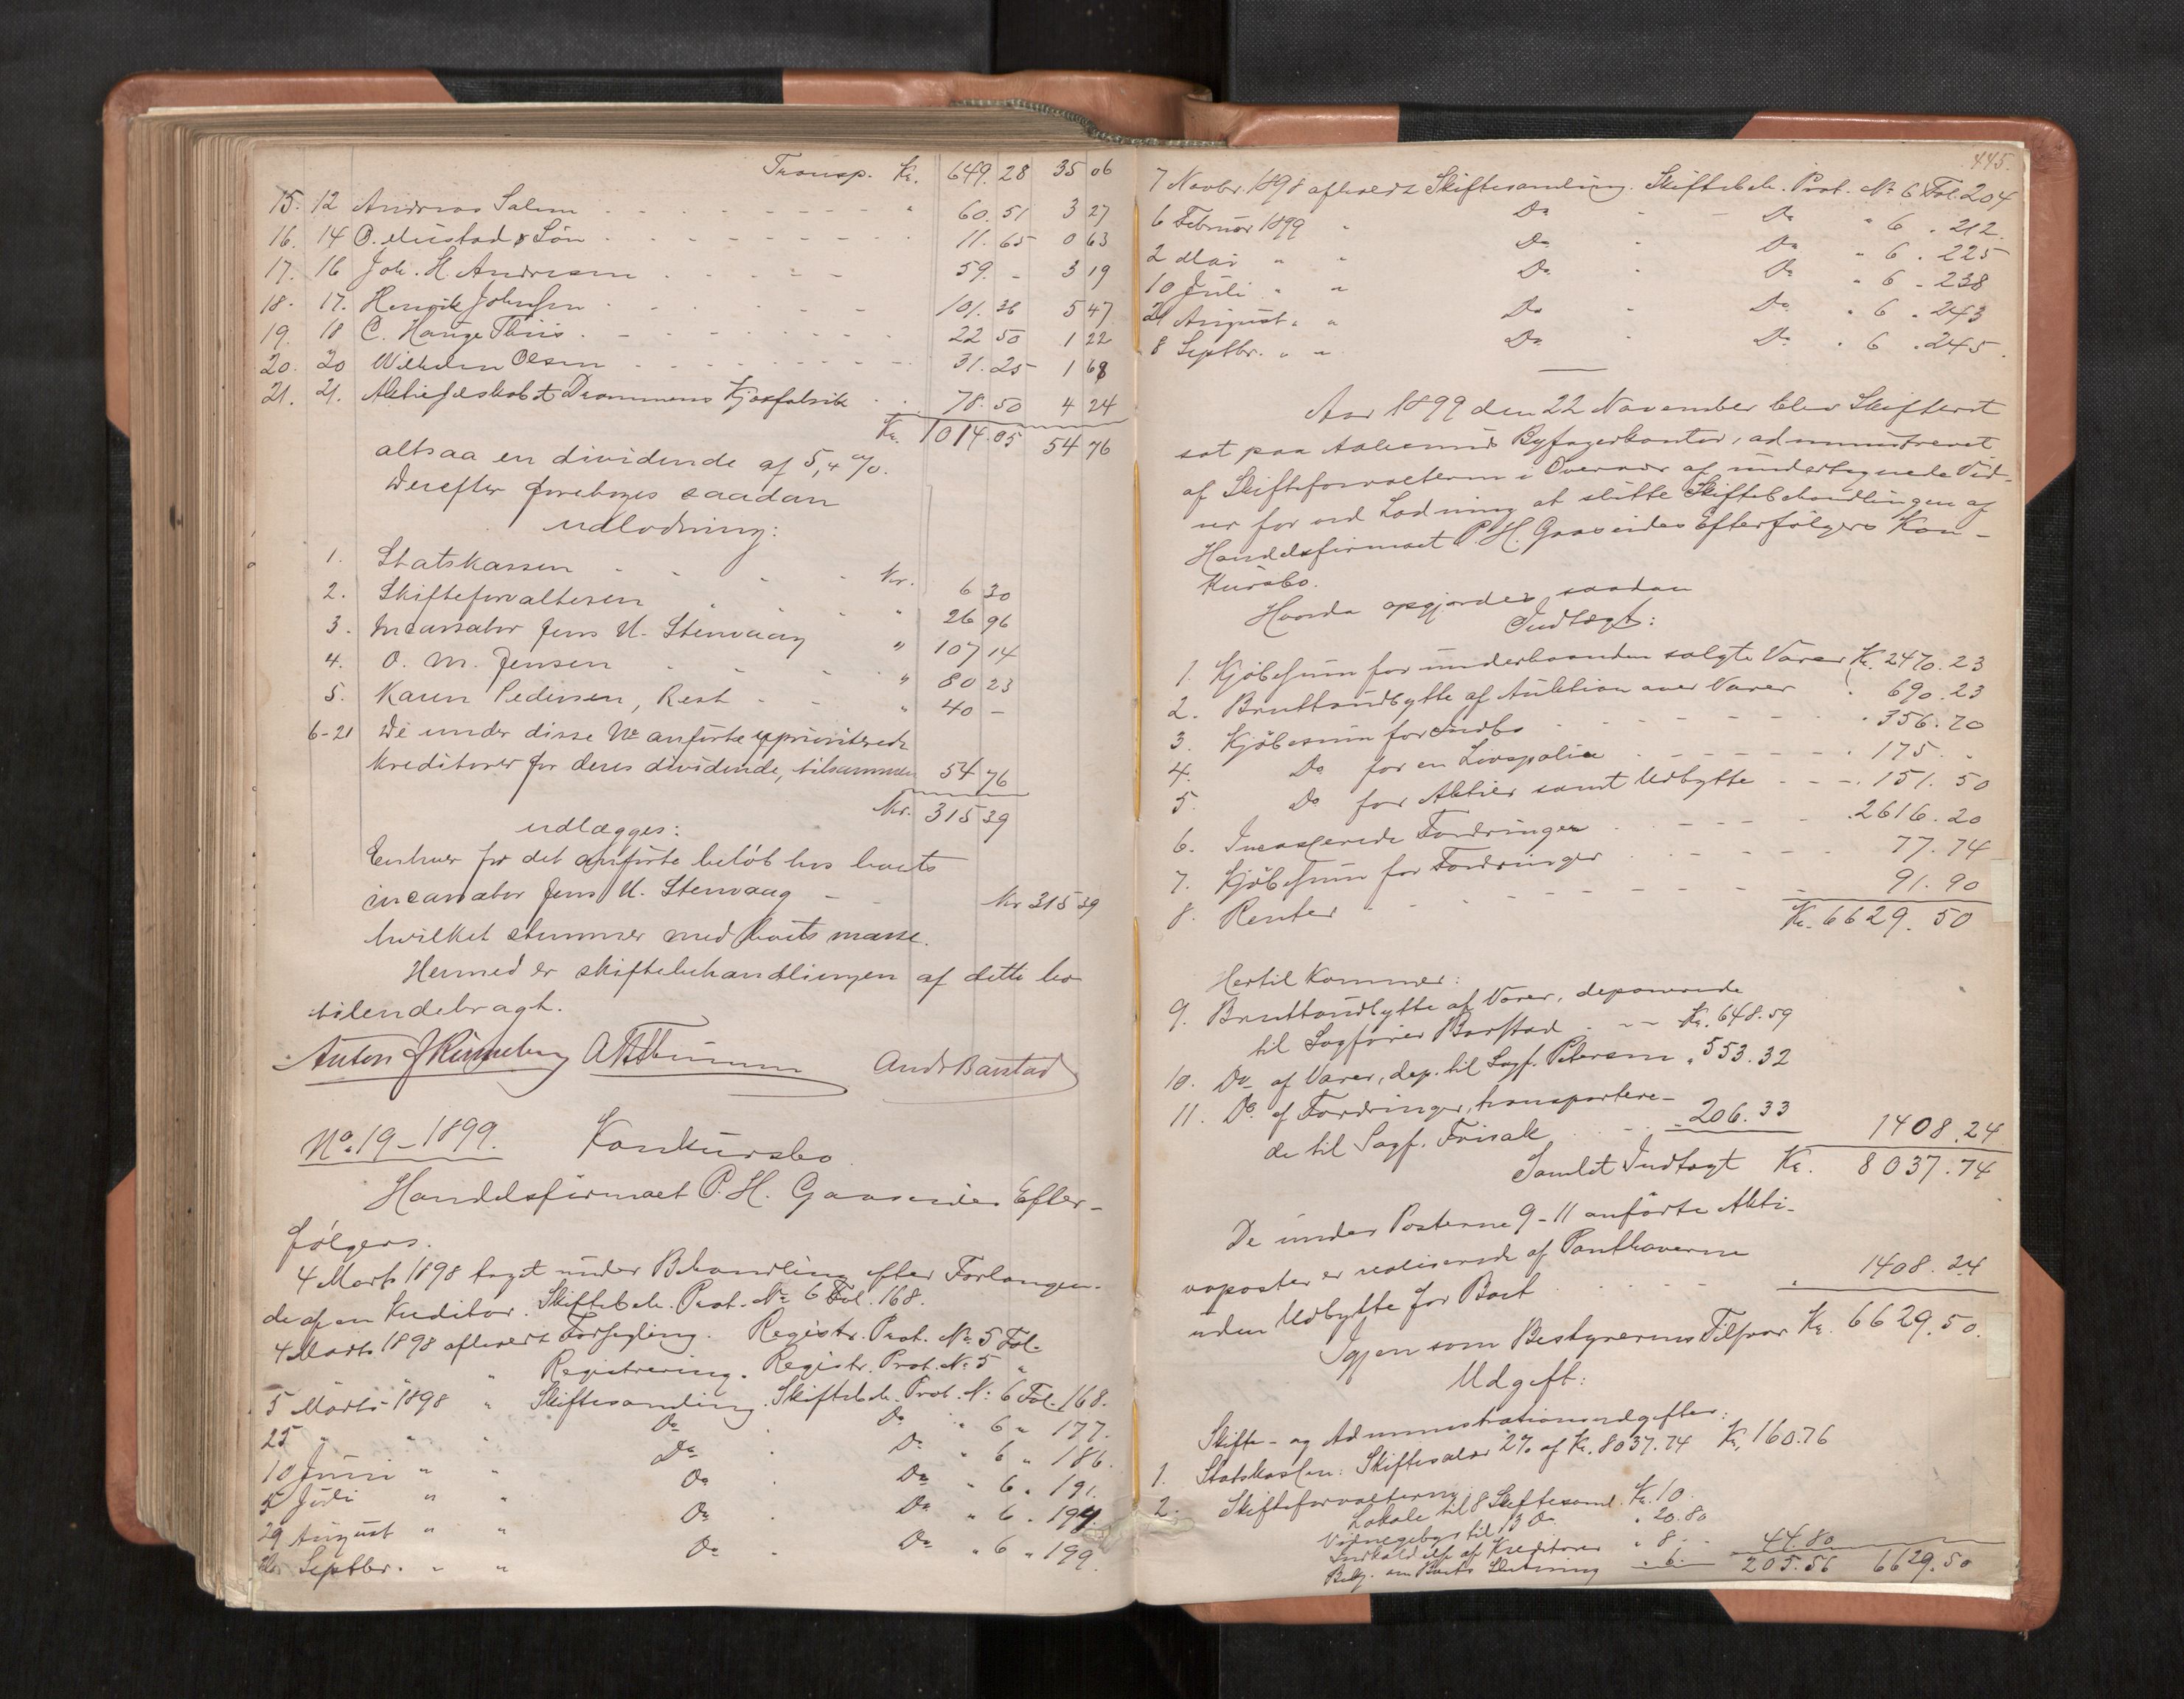 Transp. Kr. 649.28 35 06
15. 12 Andreas Salem " 60.51 3 27
16. 14 O. Mustad & Søn 11.65 0 63
17. 16 Joh. H. Andresen 59. - 3 19
18. 17. Henrik Johnsen 101.36 5 47
19. 18 C. Hauge Thiis 22 50 1 22
20. 20 Wilhelm Olsen 31.25 1 68
21. 21. Aktieselskabet Drammens 78.50 4 24
Kr. 1014.05 54 76
altsaa en dividende af 5,4 %.
Derefter foretages saadan
udlodning:
1. Statskassen Kr. 6 30
2. Skifteforvalteren " 26 96
3. Incassator Jens U. Stenvaag " 107 14
4. O. M. Jensen " 80 23
5. Karen Pedersen, Rest " 40 -
6-21 De under disse No anførte uprioriterede
kreditorer for deres dividende, tilsammen 54 76
Kr. 315 39
udlægges:
Enhver for det anførte beløb hos boets
incassator Jens U. Stenvaag Kr 315 39
hvilket stemmer med boets masse.
Hermed er skiftebehandlingen af dette bo
tilendebragt.
Anton J Rinneberg And Barstad
No. 19 - 1899. Konkursbo
Handelsfirmaet P. H. Gaaseides Efter-
følgers.
4 Marts 1898 taget under Behandling efter Forlangen-
de af en Kreditor. Skiftebeh. Prot. No 6 Fol. 168.
4 Marts 1898 afholdt Forsegling. Registr. Prot. No 5 Fol.
" Registrering. Registr. Prot. No 5 "
5 Marts 1898 " Skiftesamling. Skiftebeh. Prot. No 6 Fol. 168.
25 " " " Do Do " 6 " 177.
10 Juni " " Do Do " 6 " 186.
5 Juli " " Do Do " 6 " 191.
29 August " " Do Do " 6 " 194.
Septbr. " " Do Do " 6 " 199.
445.
7 Novbr. 1898 afholdt Skiftesamling. Skiftebeh. Prot. No 6 Fol. 204
6 Februar 1899 " Do Do " 6 " 212.
2 Mai " " Do Do " 6 . 225
10 Juli " " Do Do " 6 - 238
21 August " " Do Do " 6 " 243
8 Septbr. " " Do Do " 6 . 245.
Aar 1899 den 22 November blev Skifteret
sat paa Aalesunds Byfogedkontor, administreret
af Skifteforvalteren i Overvær af undertegnede Vid-
ner for ved Lodning at slutte Skiftebehandlingen af
Handelsfirmaet P. H. Gaaseides Efterfølgers Kon-
kursbo.
Hvorda opgjordes saadan
Indtægt:
1. Kjøbesum for underhaanden solgte Varer Kr. 2470.23
2. Bruttoudbytte af Auktion over Varer " 690.23
3. Kjøbesum for Indbo " 356.70
4. Do for en Livspolice " 175. "
5. Do for Aktier samt Udbytte " 151.50
6. Incasserede Fordringer " 2616.20
7. Kjøbesum for Fordringer 77.74
8. Renter 91.90
Kr. 6629.50
Hertil kommer:
9. Bruttoudbytte af Varer, deponerede
til Sagfører Barstad Kr. 648.59
10. Do af Varer, dep. til Sagf. Petersen " 553.32
11. Do af Fordringer, transportere-
de til Sagf. Frisak " 206.33 1408.24
Samlet Indtægt Kr. 8037.74
De under Posterne 9-11 anførte Akti-
vaposter er realiserede af Panthaverne
uden Udbytte for Boet " 1408.24
Igjen som Bestyrerens Tilsvar Kr. 6629.50.
Udgift:
Skifte- og Administrationsudgifter:
1. Statskassen: Skiftesalær 2% af Kr. 8037.74 Kr. 160.76
2. Skifteforvalteren:
Lokale til 8 Skiftesaml. Kr. 10.
Vidnegebyr til 13 Do " 20.80
Indkaldelse af Kreditorer " 8. -
Bekj. om Boets Slutning " 6. - 44.80
205.56 6629.50